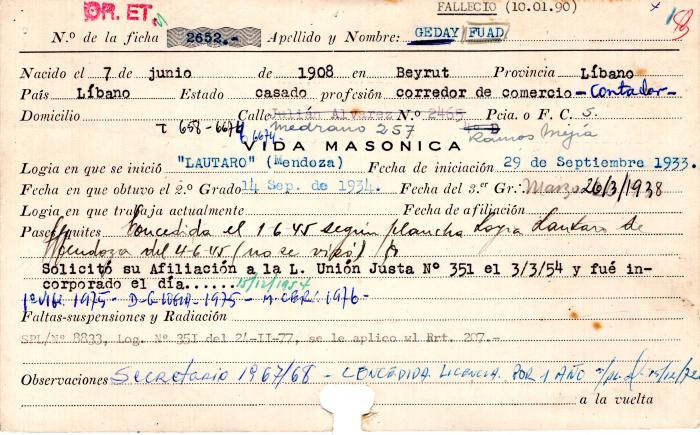 FALLECIO (10.01.90)
OR. ET.
N.º de la ficha 2652.- Apellido y Nombre: GEDAY FUAD
Nacido el 7 de junio de 1908 en Beyrut Provincia Líbano
País Líbano Estado casado profesión corredor de comercio - Contador -
Domicilio Calle Julián Alvarez N.º 2465 Pcia. o F. C. S.
T 658-6674 Medrano 257 Ramos Mejia
6674
VIDA MASONICA
Logia en que se inició "LAUTARO" (Mendoza) Fecha de iniciación 29 de Septiembre 1933.
Fecha en que obtuvo el 2.º Grado 14 Sep. de 1934. Fecha del 3.er Gr. Marzo 26/3/1938
Logia en que trabaja actualmente Fecha de afiliación
Pases quites Concedida el 1 6 45 según plancha Logia Lautaro de
Mendoza del 4-6-45 (no se visó)
Solicitó su Afiliación a la L. Unión Justa Nº 351 el 3/3/54 y fué in-
corporado el día...... 15/12/1954
1º VIG. 1975 - D. G. LOGIA - 1975 - M. CER. 1976 -
Faltas-suspensiones y Radiación
SPL/Nº 8833, Log. Nº 351 del 24-II-77, se le aplico wl Rrt. 207.-
Observaciones Secretario 1967/68 - CONCEDIDA LICENCIA POR 1 AÑO
a la vuelta